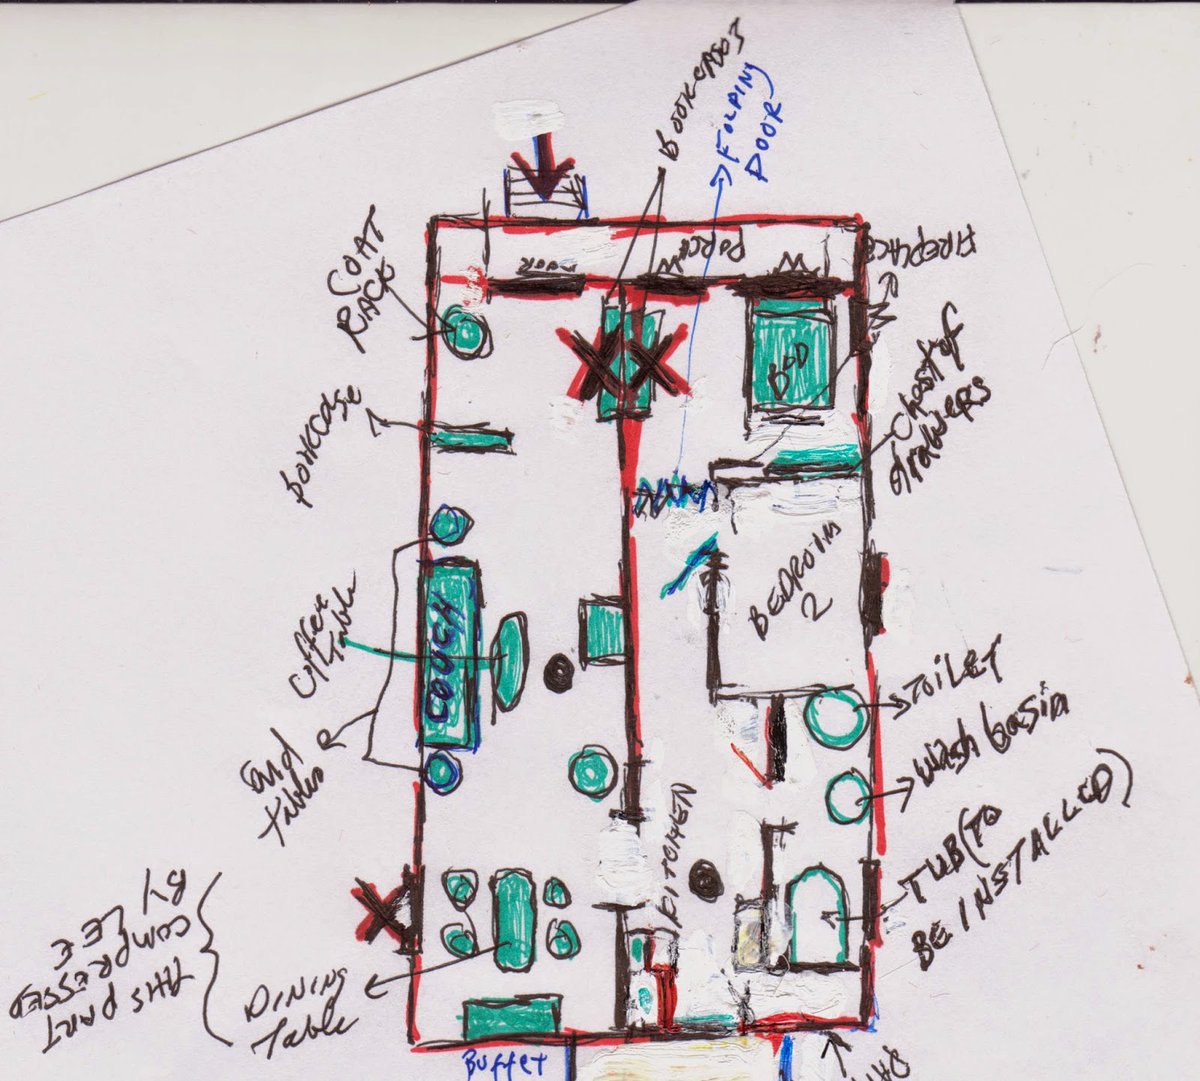 BOOKCASES
FOLDING
DOOR
COAT
RACK
DOOR
PORCH
FIREPLACE
BED
Chest of
drawers
bookcase
BEDROIM
2
Coffee
table
COUCH
End
tables
TOILET
Wash basin
KITCHEN
TUB (TO
BE INSTALLED)
THIS PART
COMPRESSED
BY LEE
DINING
Table
Buffet